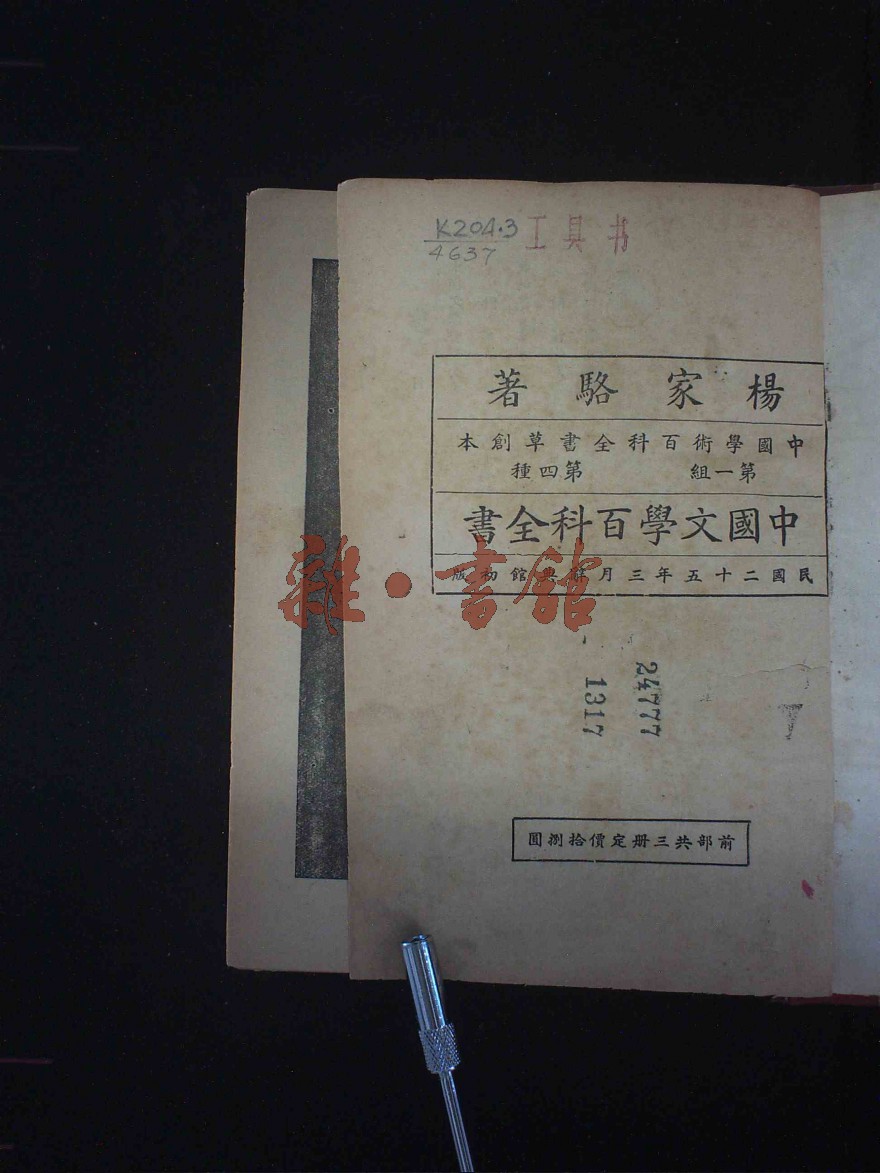 K204.3
4637
工具书
楊家駱著
中國學術百科全書草創本
第一組 第四種
中國文學百科全書
民國二十五年三月辭典館初版
雜·書館
24777
1317
前部共三册定價拾捌圓